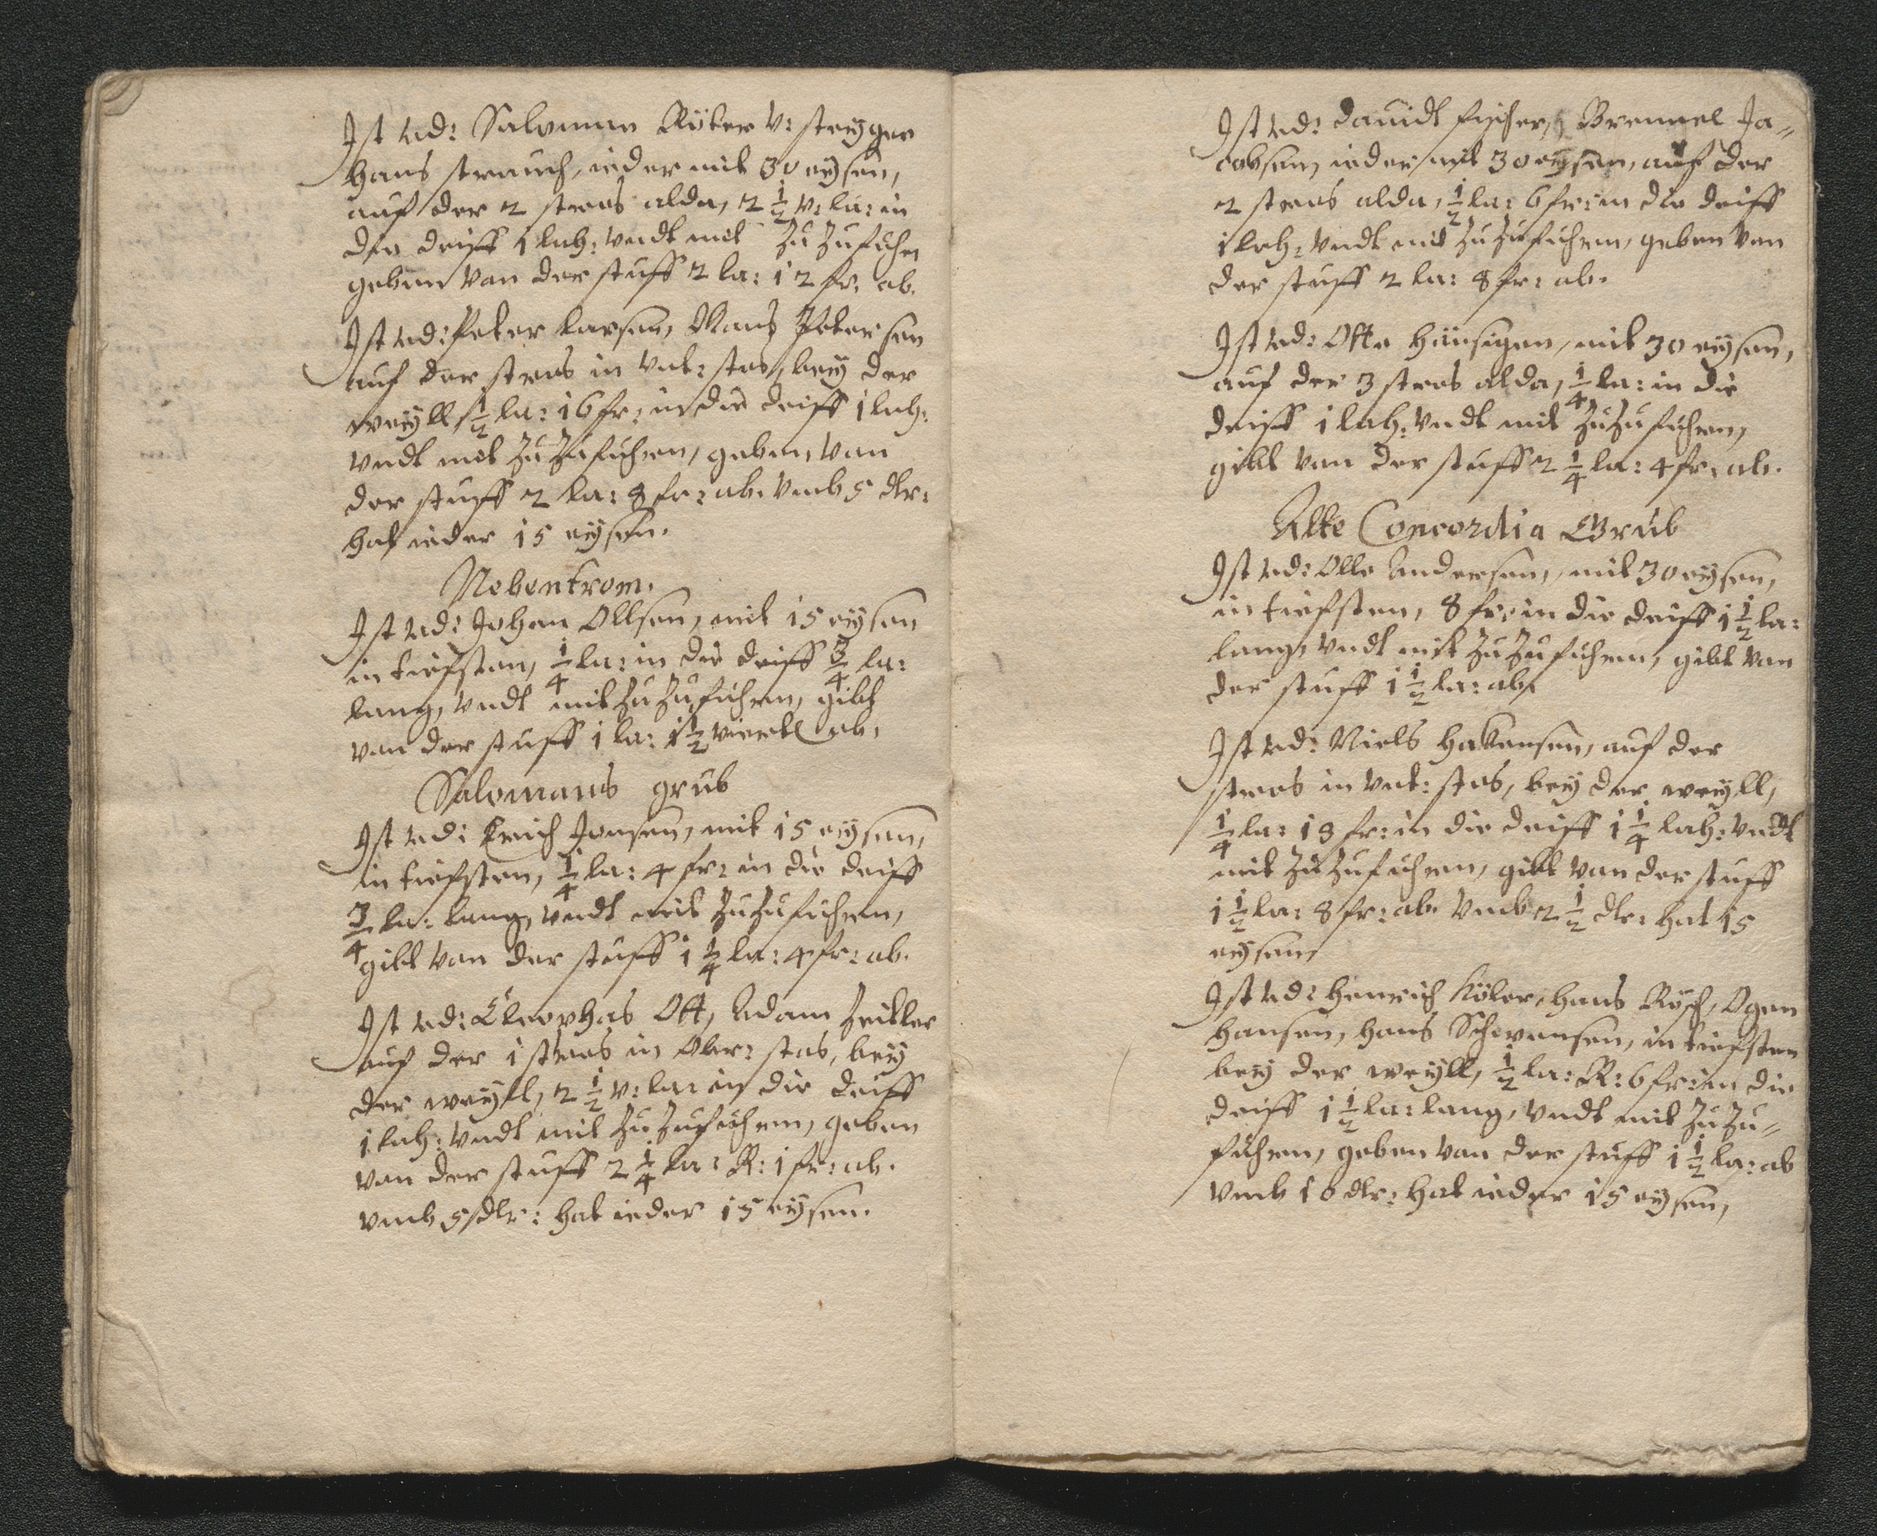 Ist ad: Saloman Rüter v: steyger
Hans strauch, ieder mit 30 eysen,
auf der 2 stras alda, 2 1/2 v: la: in
die deiff 1 lah: vndt mit Zu Zufuhrn
geben van der stuff 2 la: 12 fr: ab.
Ist ad: Peter Larsen, Mans Petersen
auf der stras in vnt: stos, bey der
weyll 1/2 la: 16 fr: in die deiff 1 lah:
vndt mit Zu Zufuhren, geben van
der stuff 2 la: 8 fr: ab. vmb 5 dlr:
hat ieder 15 eysen.
Nebentrom.
Ist ad: Johan Ollsen, mit 15 eysen
in tiefsten, 1/4 la: in die deiff 3/4 la:
lang, vndt mit Zu Zufuhren, gibt
van der stuff 1 la: 1 1/2 viertl ab.
Salomans grub
Ist ad: Erich Jonsen, mit 15 eysen,
in tiefsten, 1/4 la: 4 fr: in die deiff
3/4 la: lang, vndt mit Zu Zufuhren,
gibt van der stuff 1 1/4 la: 4 fr: ab.
Ist ad: Cleophas Ott, Adam Zeitler
auf der 1 stras in Ober: stos, bey
der weyll, 2 1/2 v: la: in die deiff
1 lah: vndt mit Zu Zufuhren, geben
van der stuff 2 1/4 la: R: 1 fr: ab.
vmb 5 dlr: hat ieder 15 eysen.
Ist ad: Dauidt Fischer, Bremel Ja„
cobsen, ieder mit 30 eysen, auf der
2 stras alda, 1/2 la: 6 fr: in die deiff
1 lah: vndt mit Zu Zufuhren, geben van
der stuff 2 la: 8 fr: ab.
Ist ad: Otto Hünsigen, mit 30 eysen,
auf der 3 stras alda, 1/4 la: in die
deiff 1 lah: vndt mit Zu Zufuhren,
gibt van der stuff 2 1/4 la: 4 fr: ab.
Alte Concordia Grub
Ist ad: Olle Andersen, mit 30 eysen,
in tiefsten, 8 fr: in die deiff 1 1/2 la:
lang, vndt mit Zu Zufuhren, gibt van
der stuff 1 1/2 la: ab.
Ist ad: Niels Hakensen, auf der
stras in vnt: stos, bey der weyll,
1/4 la: 18 fr: in die deiff 1 1/4 lah: vndt
mit Zu Zufuhren, gibt van der stuff
1 1/2 la: 8 fr: ab. vmb 2 1/2 dlr: hat 15
eysen,
Ist ad: Henrich Köler, Hans Rösch, Ogen
Hansen, Hans Schevensen, in tiefsten
bey der weyll, 1/2 la: R: 6 fr: in die
deiff 1 1/2 la: lang, vndt mit Zu Zu„
fuhren, geben van der stuff 1 1/2 la: ab
vmb 10 dlr: hat ieder 15 eysen,